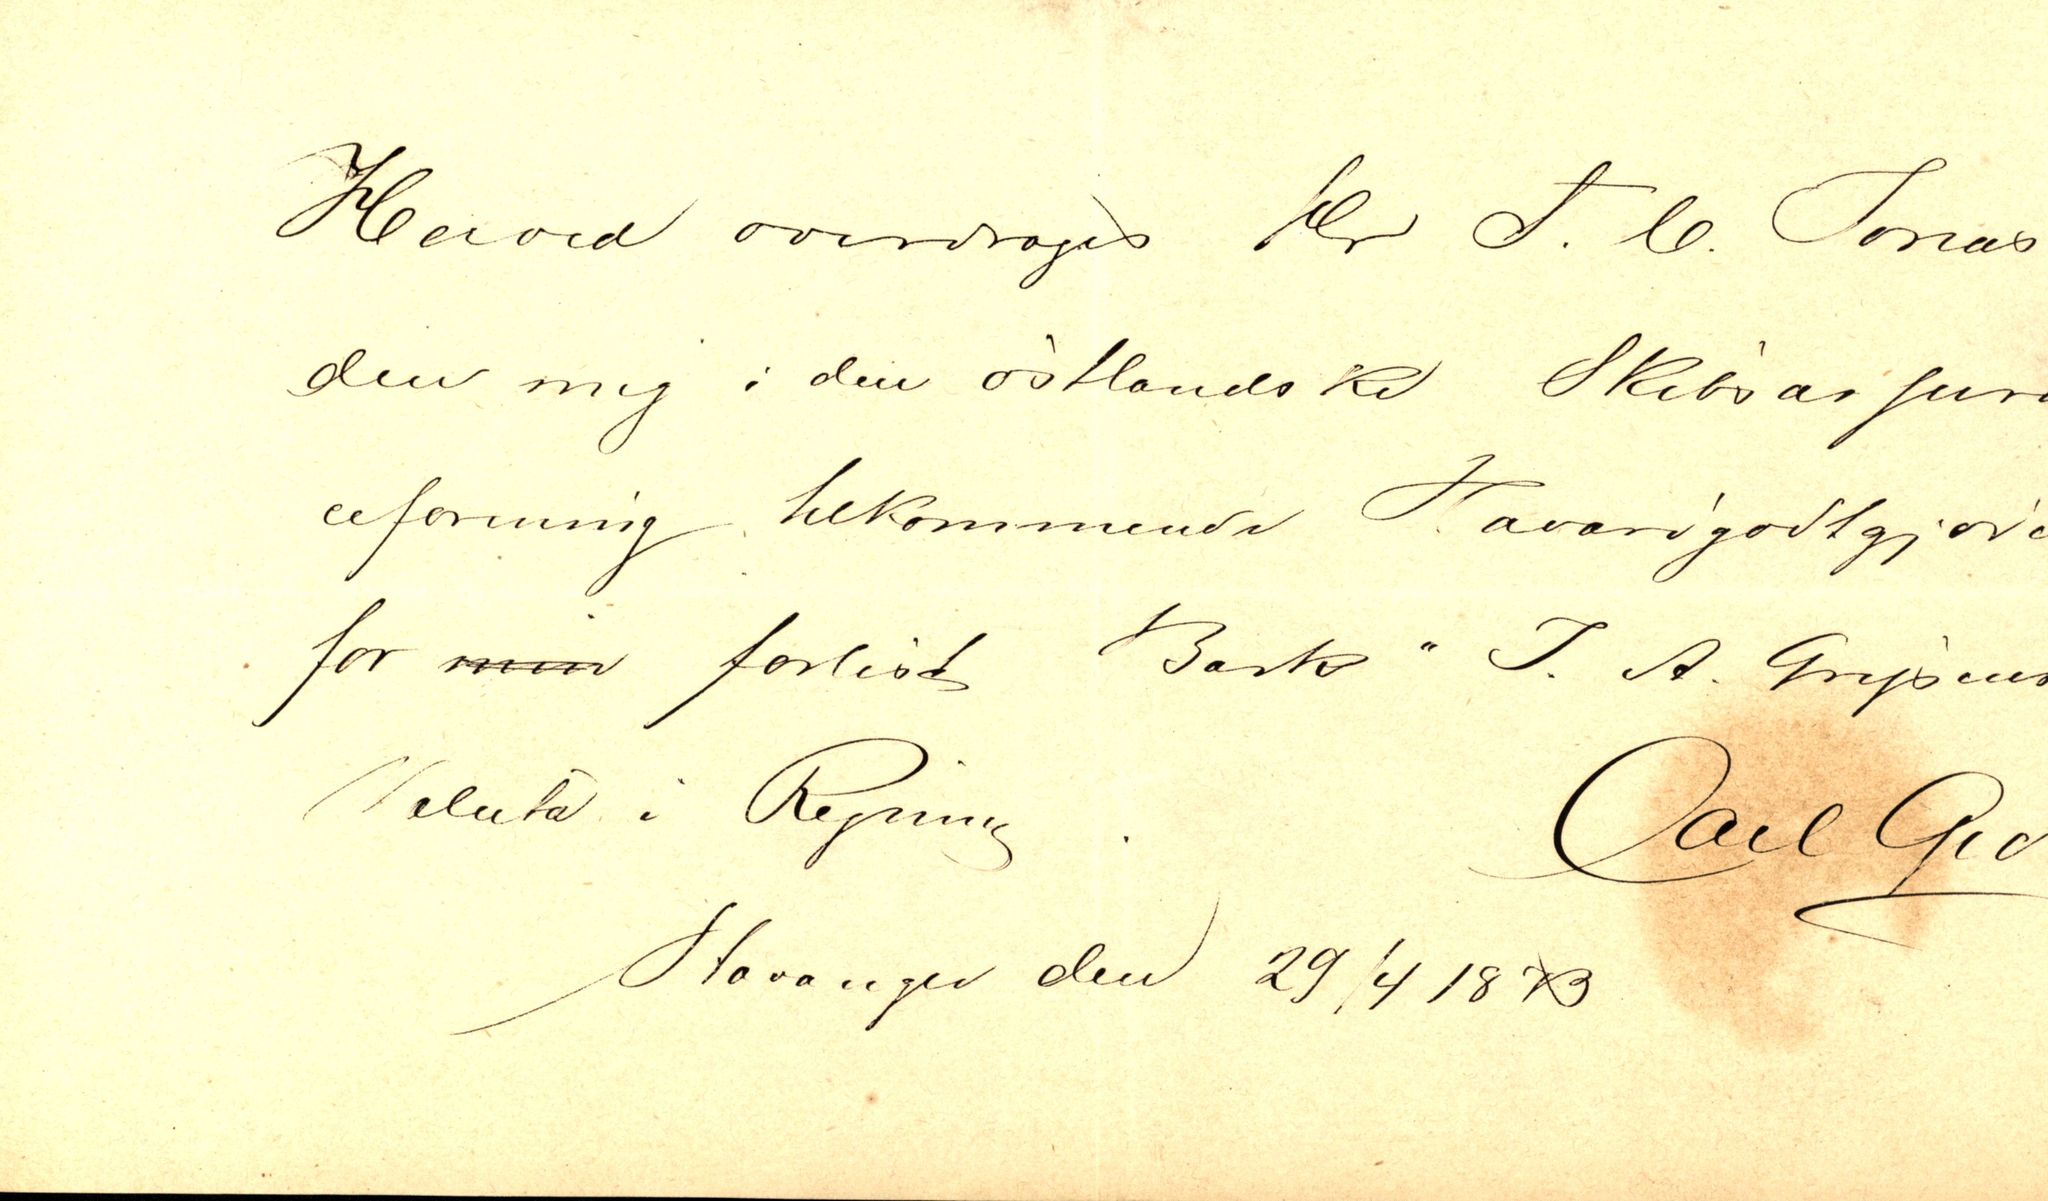 Herved overdrages Hr T. C. Jonas
den mig i den östlandske Skibsassuran
ceforening tilkommende Havarigodtgjørel
for min forlist Bark "
Valuta i Regning.
Carl
Stavanger den 29/4 1873